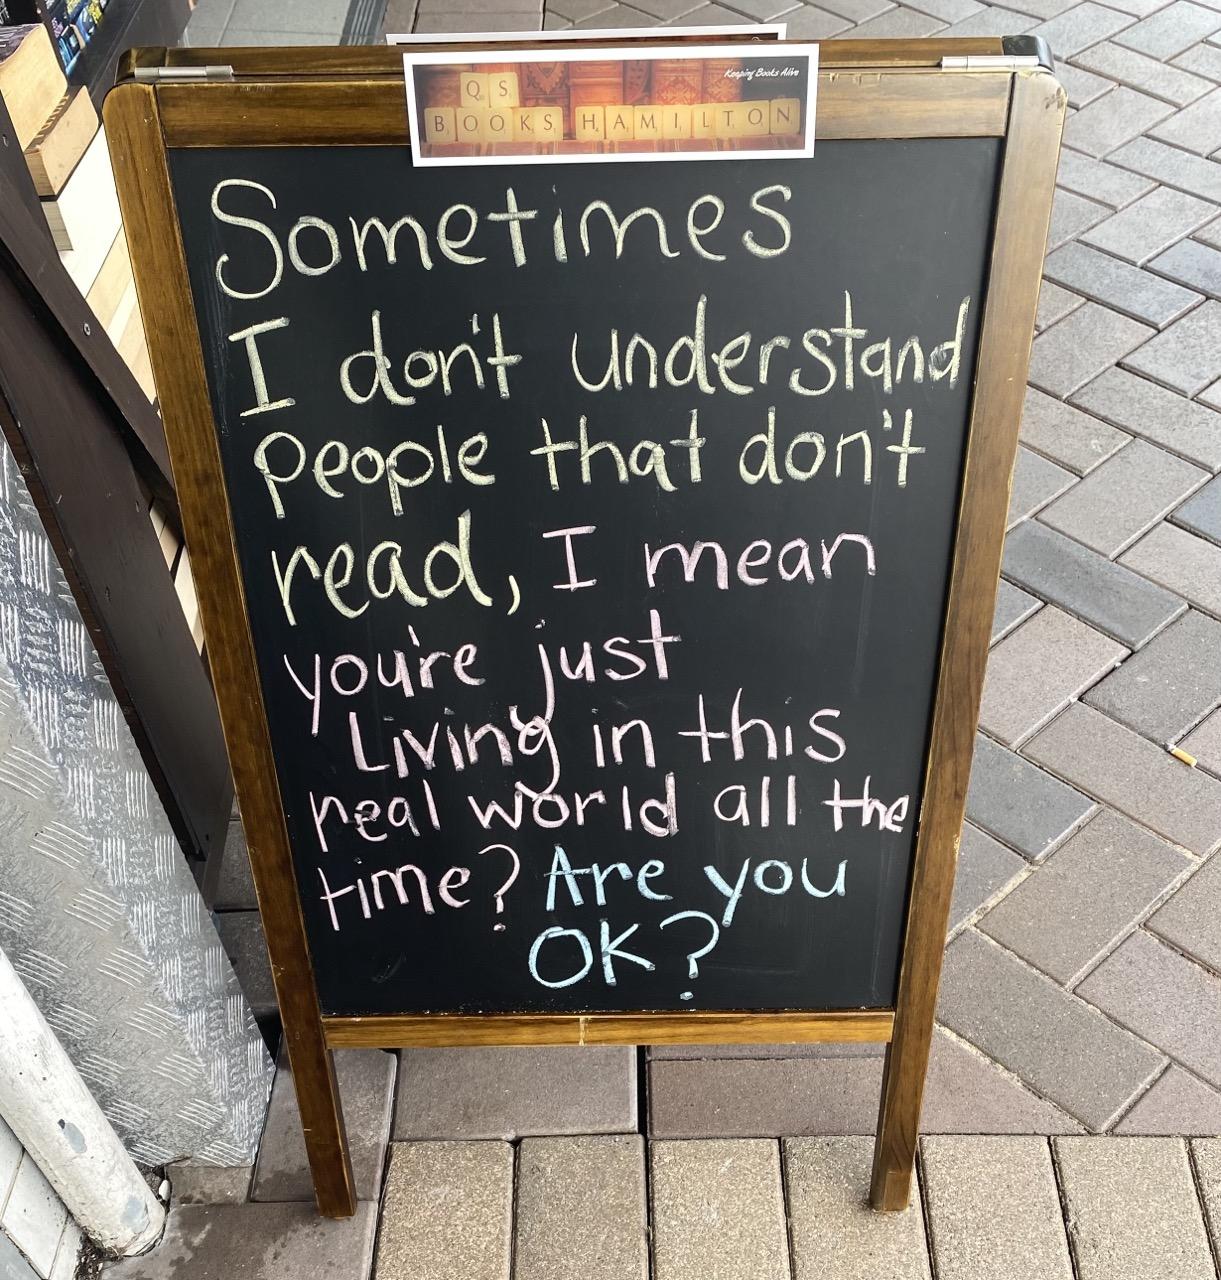 Keeping Books Alive
QS
BOOKS HAMILTON
Sometimes
I don't understand
people that don't
read, I mean
you're just
Living in this
real world all the
time? Are you
OK?